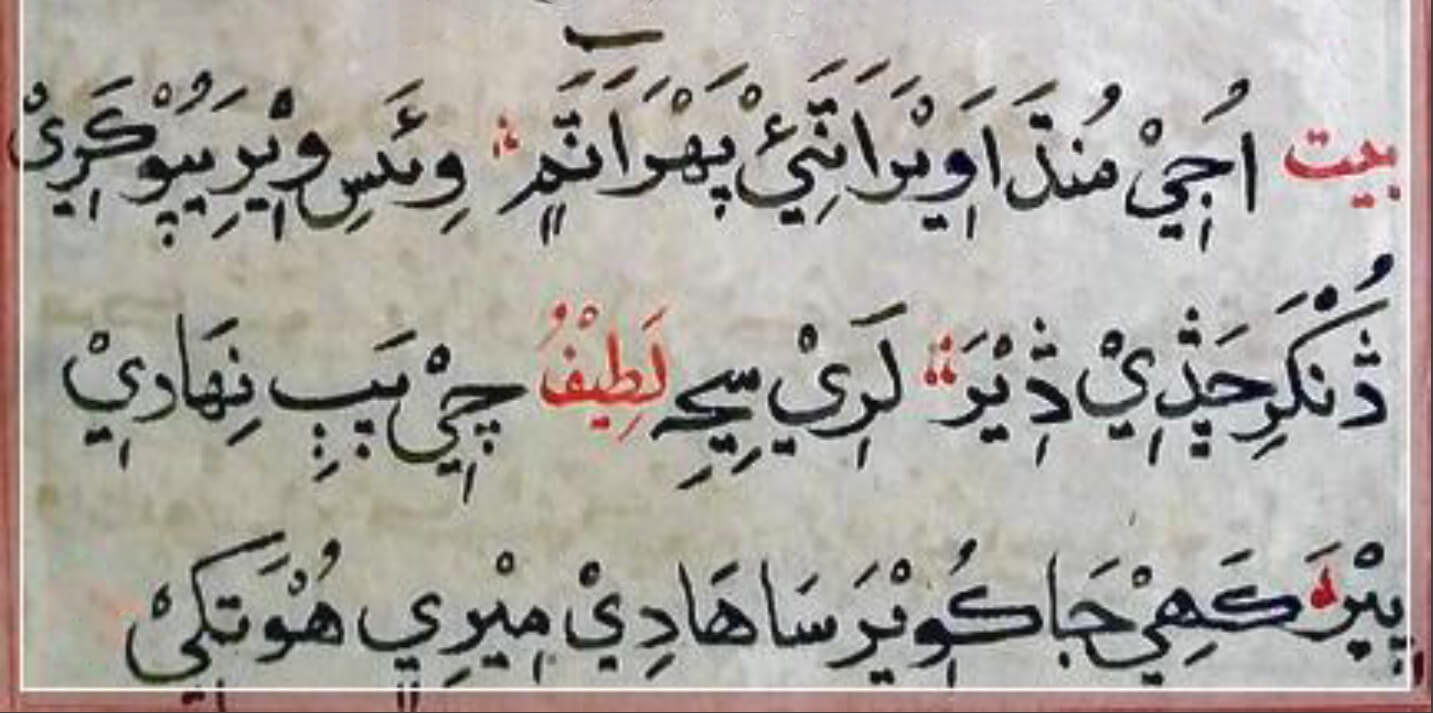 بيت اُجِيْ مُنڌَ اَوِيْرَ اَنِّيْ پَهْرَ اَنَّمِ وِئَسِ وِيْرِ پِيُوْ ڪَرِيْ
ڏُنگَرِ حَڏِيْ ڏِيْرَ لَرِيْ سِحِ لَطِيْفُ چِيْ پَبِ نِهَارِيْ
پِيْرَ ڪَهِيْ جَا ڪُوِيْرَ سَا هَادِيْ مِيْرِي هُوْتَ کِيْ